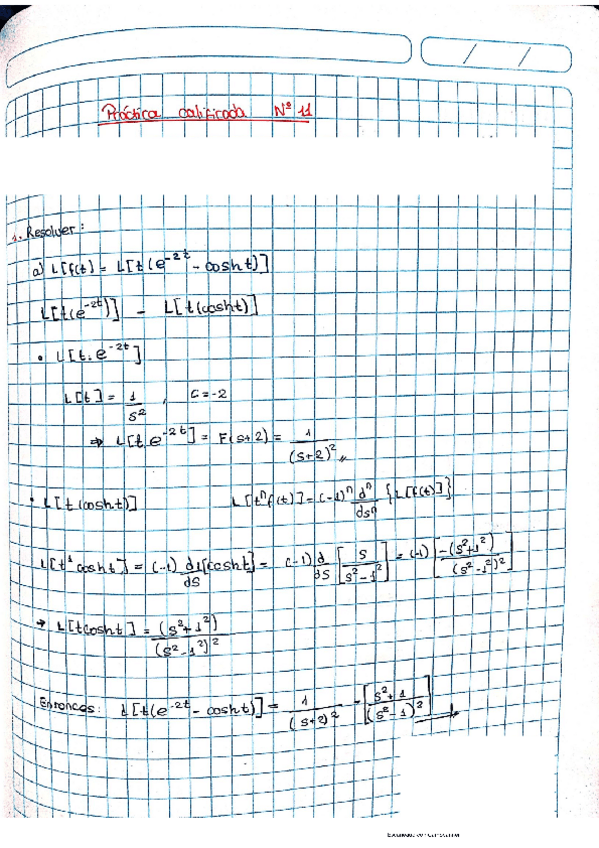 Práctica calificada Nº 11
1. Resolver:
a) L[f(t) = L[t(e^-2t - cosht)]
L[t(e^-2t)] - L[t(cosht)]
• L[t.e^-2t]
L[t] = 1/s², C=-2
⇒ L[t e^-2t] = F(s+2) = 1/(s+2)²
• L[t(cosht)] L[tⁿf(t)] = (-1)ⁿ dⁿ/dsⁿ {L[f(t)]}
L[t¹cosht] = (-1) d L[cosht]/ds = (-1) d/ds [s/(s²-1²)] = (-1) [-(s²+1²)/(s²-1²)²]
→ L[tcosht] = (s²+1²)/(s²-1²)²
Entonces: L[t(e^-2t - cosht)] = 1/(s+2)² - [s²+1/(s²-1)²]